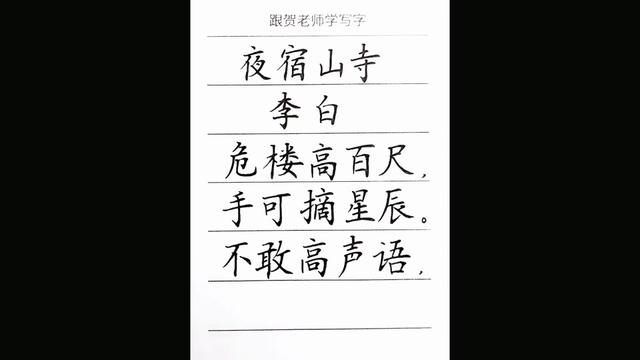 跟贺老师学写字
夜宿山寺
李白
危楼高百尺，
手可摘星辰。
不敢高声语，